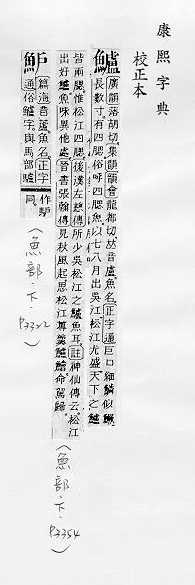 康熙字典
校正本
鱸 廣韻落胡切集韻韻會龍都切𠀤音盧魚名正字通巨口細鱗似鱖
長數寸有四腮俗呼四腮魚以七八月出吳江松江尤盛天下之鱸
皆兩腮惟松江四腮後漢左慈傳所少吳松江之鱸魚耳註神仙傳云松江
出好鱸魚味異他處晉書張翰傳見秋風起思松江蓴羹鱸膾命駕歸
(魚部.下.P3354)
魲 篇海音盧魚名正字
通俗鱸字與馬部驢
作馿同
(魚部.下.